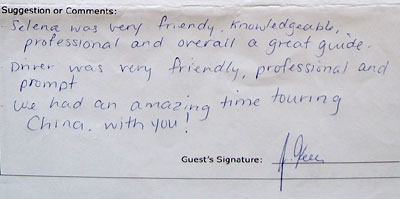 Suggestion or Comments:
· Selena was very friendy, knowledgeable,
professional and overall a great guide.
· Driver was very friendly, professional and
prompt
· We had an amazing time touring
China. with you!
Guest's Signature: